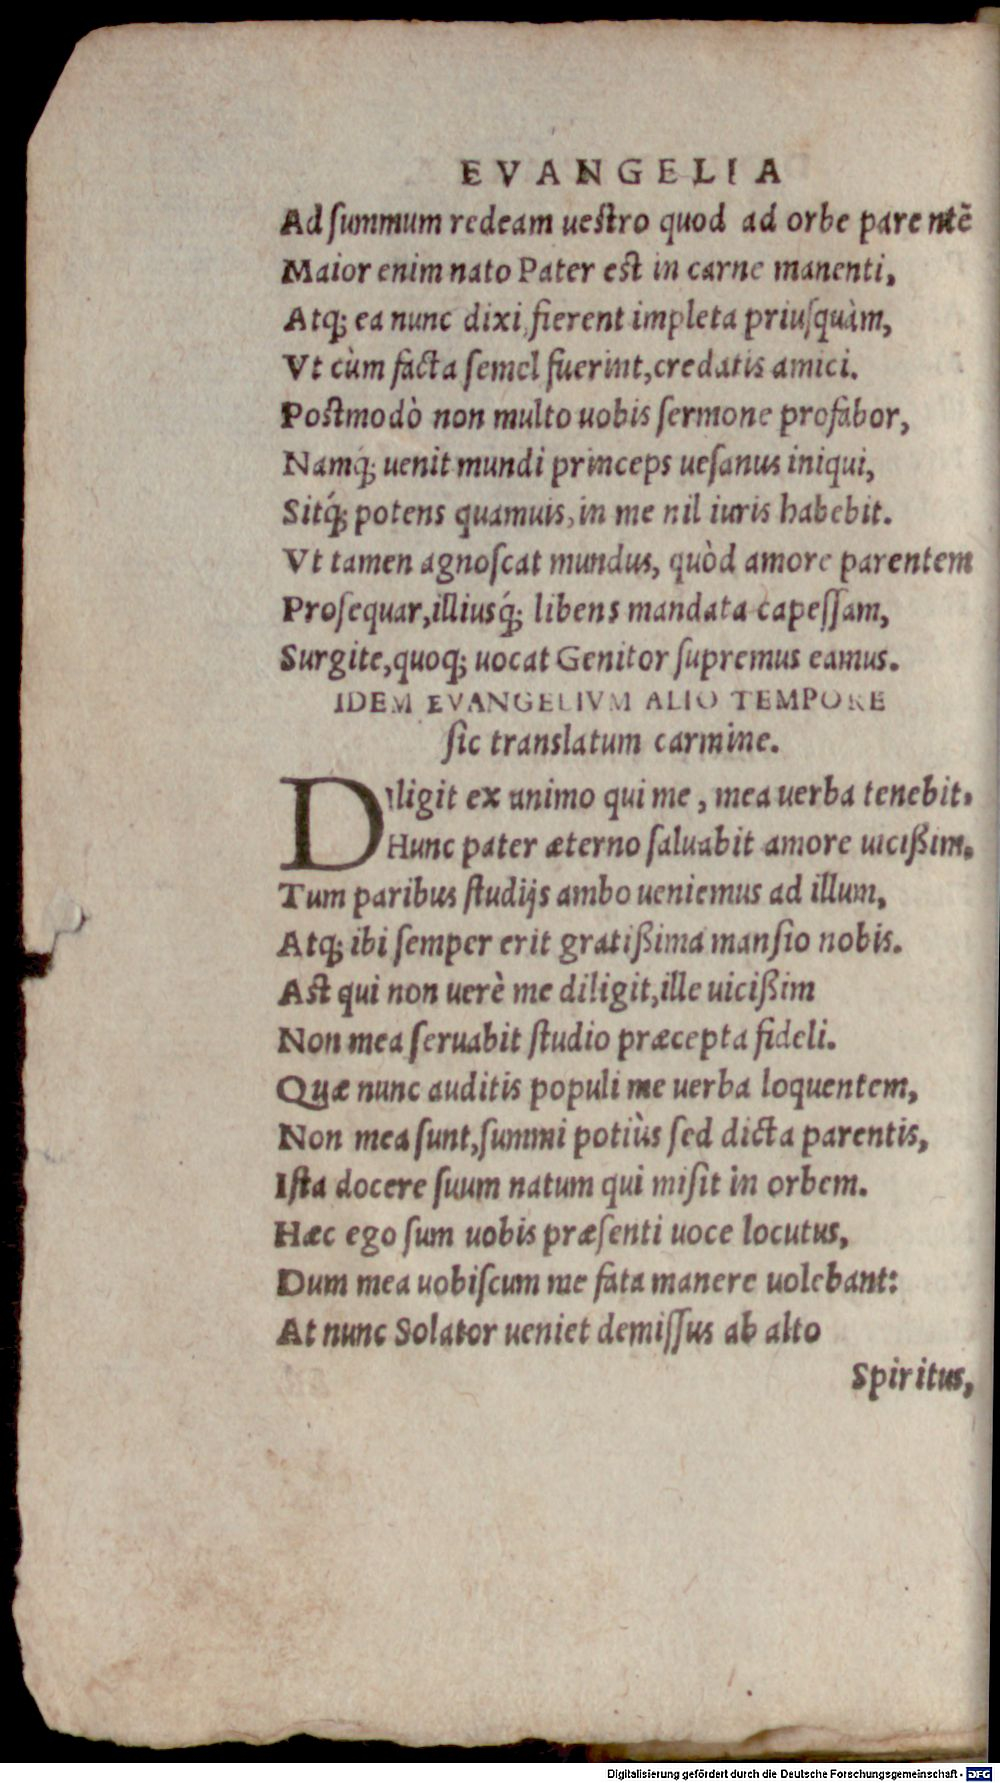 EVANGELIA
Ad ſummum redeam ueſtro quod ad orbe parentẽ
Maior enim nato Pater eſt in carne manenti,
Atq; ea nunc dixi, fierent impleta priuſquàm,
Vt cùm facta ſemel fuerint, credatis amici.
Poſtmodò non multo uobis ſermone profabor,
Namq́; uenit mundi princeps ueſanus iniqui,
Sitq́; potens quamuis, in me nil iuris habebit.
Vt tamen agnoſcat mundus, quòd amore parentem
Proſequar, illiusq́; libens mandata capeſſam,
Surgite, quoq; uocat Genitor ſupremus eamus.
IDEM EVANGELIVM ALIO TEMPORE
ſic translatum carmine.
Diligit ex animo qui me, mea uerba tenebit,
Hunc pater æterno ſaluabit amore uicißim.
Tum paribus ſtudijs ambo ueniemus ad illum,
Atq; ibi ſemper erit gratißima manſio nobis.
Aſt qui non uerè me diligit, ille uicißim
Non mea ſeruabit ſtudio præcepta fideli.
Quæ nunc auditis populi me uerba loquentem,
Non mea ſunt, ſummi potiùs ſed dicta parentis,
Iſta docere ſuum natum qui miſit in orbem.
Hæc ego ſum uobis præſenti uoce locutus,
Dum mea uobiſcum me fata manere uolebant:
At nunc Solator ueniet demiſſus ab alto
Spiritus,
Digitalisierung gefördert durch die Deutsche Forschungsgemeinschaft - DFG